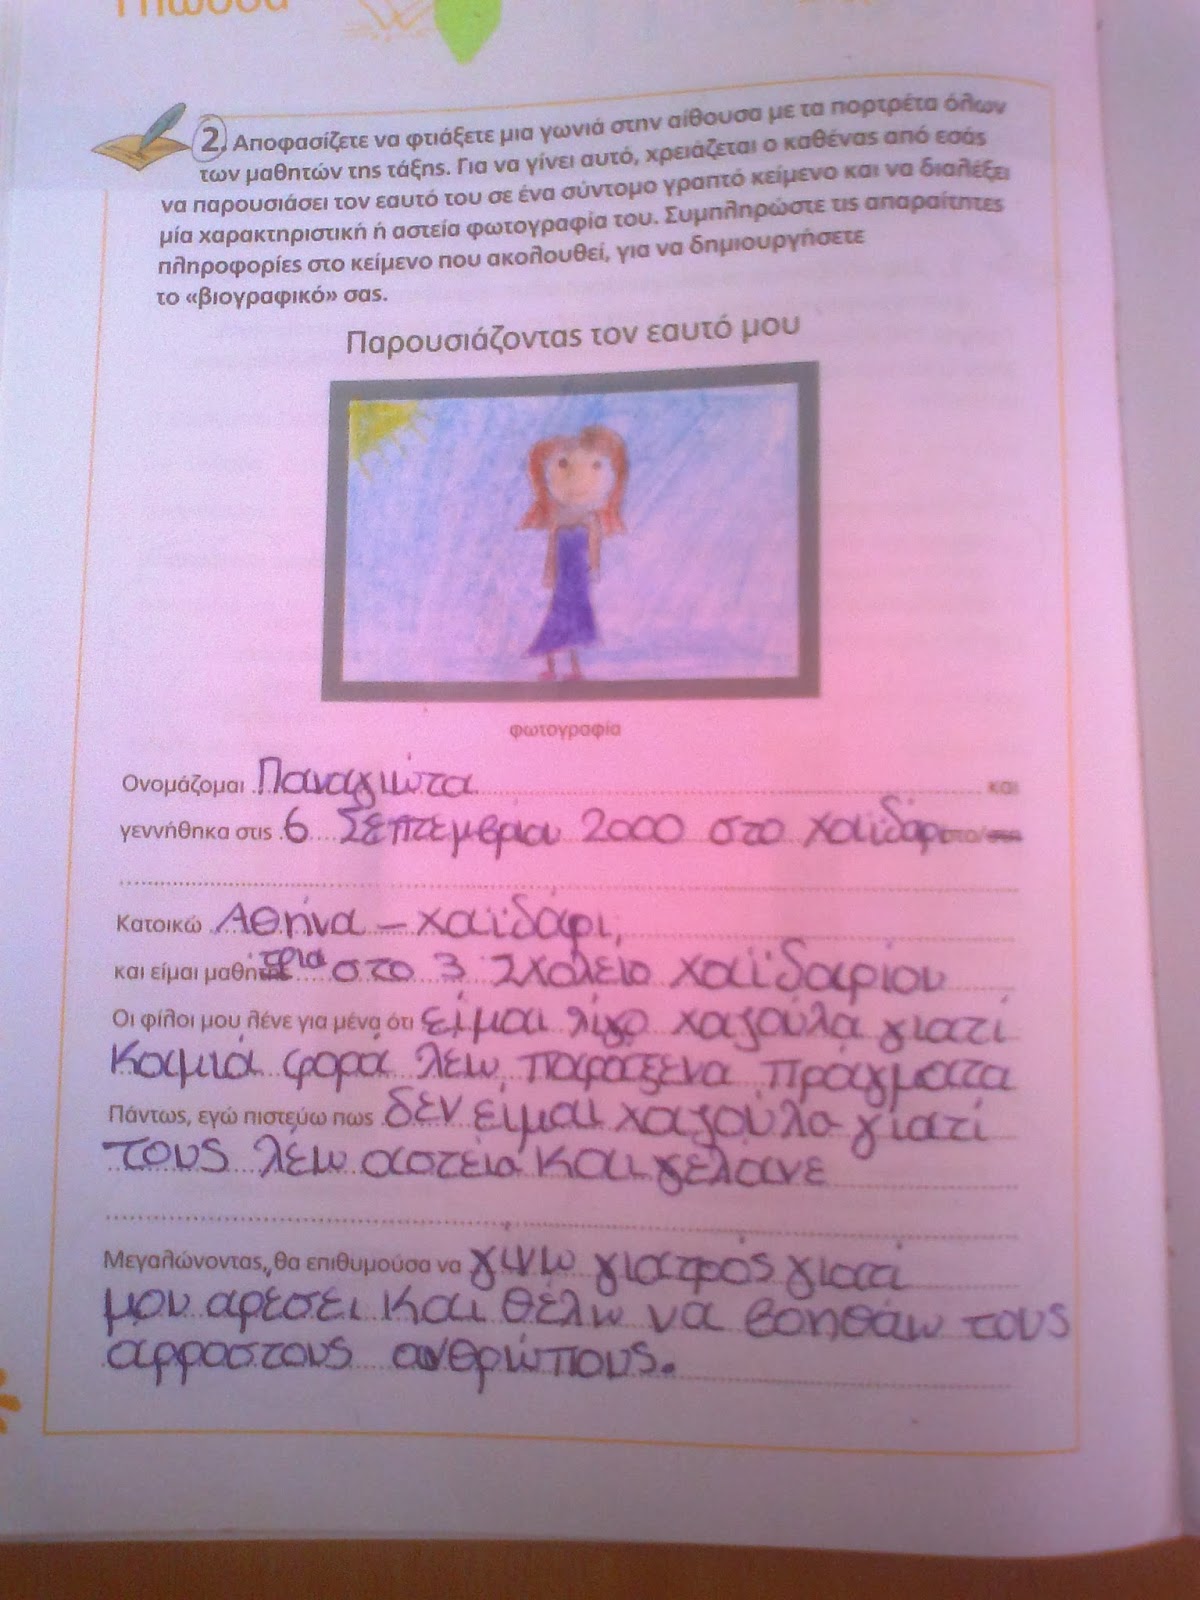 Γλώσσα
2. Αποφασίζετε να φτιάξετε μια γωνιά στην αίθουσα με τα πορτρέτα όλων
των μαθητών της τάξης. Για να γίνει αυτό, χρειάζεται ο καθένας από εσάς
να παρουσιάσει τον εαυτό του σε ένα σύντομο γραπτό κείμενο και να διαλέξει
μία χαρακτηριστική ή αστεία φωτογραφία του. Συμπληρώστε τις απαραίτητες
πληροφορίες στο κείμενο που ακολουθεί, για να δημιουργήσετε
το «βιογραφικό» σας.
Παρουσιάζοντας τον εαυτό μου
φωτογραφία
Ονομάζομαι Παναγιώτα και
γεννήθηκα στις 6 Σεπτεμβρίου 2000 στο Χαϊδάρι στο/στη
Κατοικώ Αθήνα – Χαϊδάρι,
και είμαι μαθήτρια στο 3 Σχολείο Χαϊδαρίου
Οι φίλοι μου λένε για μένα ότι είμαι λίγο χαζούλα γιατί
Καμιά φορά λέω παραξενα πράγματα
Πάντως, εγώ πιστεύω πως δεν είμαι χαζούλα γιατί
τους λέω αστεία και γελανε
Μεγαλώνοντας, θα επιθυμούσα να γίνω γιατρός γιατί
μου αρέσει και θέλω να βοηθάω τους
αρρωστους ανθρώπους.